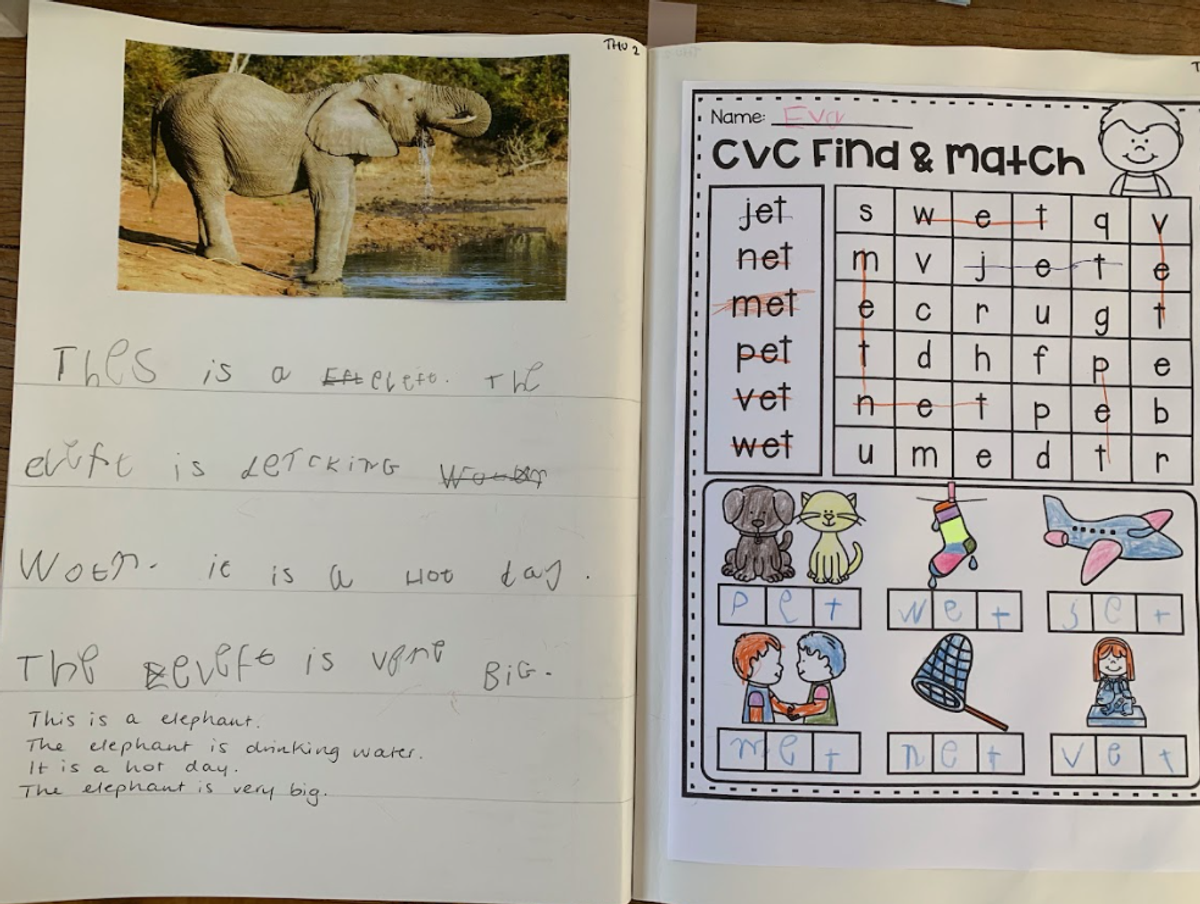 THU 2
Thes is a eleft. The
eleft is detcking
Wotr. it is a Hot day.
The eleft is vere BiG.
This is a elephant.
The elephant is drinking water.
It is a hot day.
The elephant is very big.
Name: Eva
CVC Find & Match
jet
net
met
pet
vet
wet
s w e t q v
m v j e t e
e c r u g t
t d h f p e
n e t p e b
u m e d t r
pet wet jet
met net vet